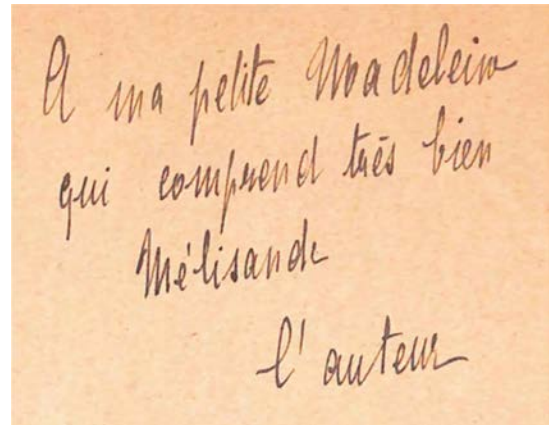 A ma petite Madeleine
qui comprend très bien
Mélisande
l'auteur